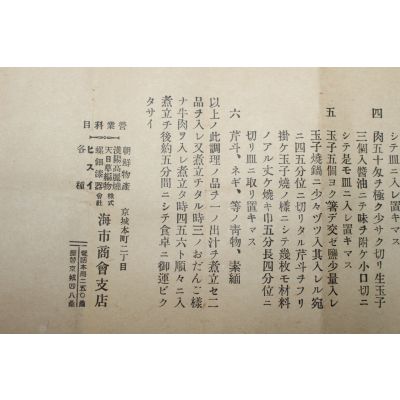 シテ皿ニ入レ置キマス
四 肉五十匁ヲ極ク少サク切リ生玉子
三個入醬油ニテ味ヲ附ケ小口切ニ
シテ是モ皿ニ入レ置キマス
五 玉子五個ヨク箸デ交ゼ鹽少量入レ
玉子燒鍋ニ少々ヅツ入其入レル宛
ニ四五分位ニ切リタル芹ヲチフリ
掛ケ玉子燒ノ樣ニシテ幾枚モ材料
ノアル丈ケ燒キ巾五分長四分位ニ
切リ皿ニ取リ置キマス
六 芹ヲ、ネギ、等ノ青物、素緬
以上ノ此調理ノ品ヲ一ノ出汁デ煮立セ二
品ヲ入レ又煮立チタル時三ノおだんご樣
ナ牛肉ヲ入レ煮立タ時四五六ト順々ニ入
煮立チ後約五分間ニシテ食卓ニ御運ビク
タサイ
營業科目
朝鮮物產
漢陽高麗燒
天日草編物
螺鈿漆器
ヒスイ
各種
京城本町二丁目
株式會社 海市商會支店
電話本局二一五〇番
振替京城四八番